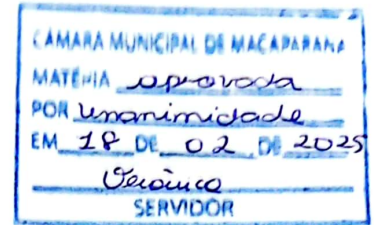 CÂMARA MUNICIPAL DE MACAPARANA
MATÉRIA aprovada
POR unanimidade
EM 18 DE 02 DE 2025
Verônica
SERVIDOR